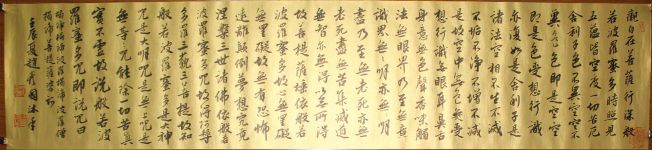 觀自在菩薩行深般
若波羅蜜多時照見
五蘊皆空度一切苦厄
舍利子色不異空空不
異色色即是空空
即是色受想行識
亦復如是舍利子是
諸法空相不生不滅
不垢不淨不增不減
是故空中無色無受
想行識無眼耳鼻舌
身意無色聲香味觸
法無眼界乃至無意
識界無無明亦無無明
盡乃至無老死亦無
老死盡無苦集滅道
無智亦無得以無所得
故菩提薩埵依般若
波羅蜜多故心無罣礙
無罣礙故無有恐怖
遠離顛倒夢想究竟
涅槃三世諸佛依般若
波羅蜜多故得阿耨
多羅三藐三菩提故知
般若波羅蜜多是大神
咒是大明咒是無上咒是
無等等咒能除一切苦真
實不虛故說般若波
羅蜜多咒即說咒曰
揭諦揭諦波羅揭諦波羅僧
揭諦菩提薩婆訶
壬辰夏趙國沐手